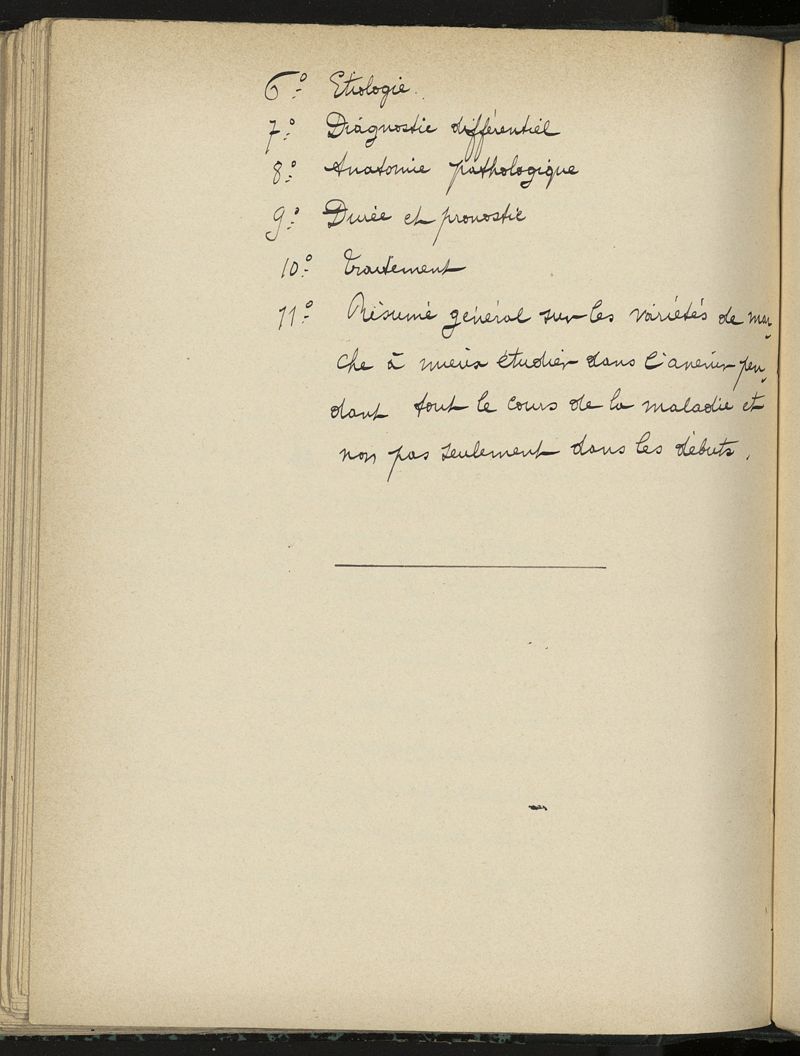 6º Etiologie.
7º Diagnostic différentiel
8º Anatomie pathologique
9º Durée et pronostic
10º Traitement
11º Résumé général sur les variétés de mar-
che à mieux étudier dans l'avenir pen-
dant tout le cours de la maladie et
non pas seulement dans les débuts.